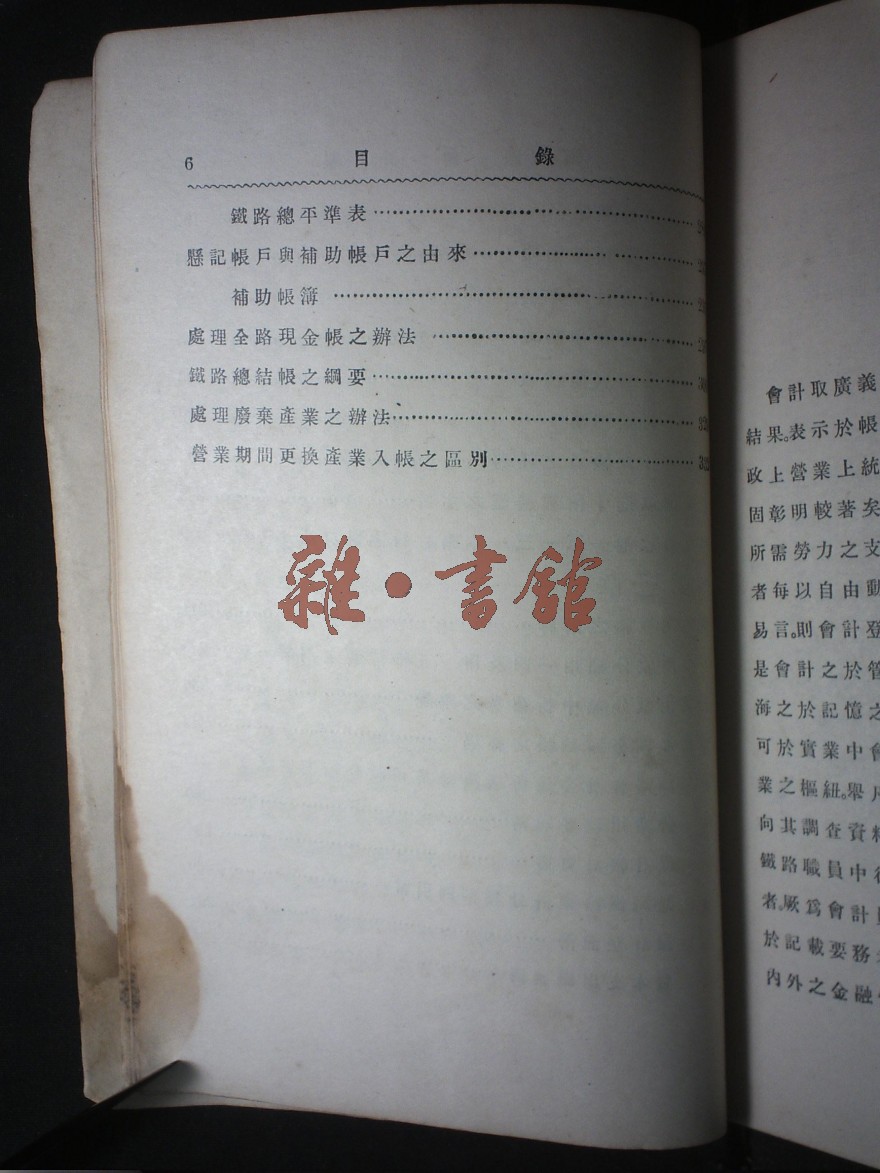 6 目 錄
鐵路總平準表
懸記帳戶與補助帳戶之由來
補助帳簿
處理全路現金帳之辦法
鐵路總結帳之綱要
處理廢棄產業之辦法
營業期間更換產業入帳之區別
雜•書館
會計取廣義
結果。表示於帳
政上營業上統
固彰明較著矣
所需勞力之支
者每以自由動
易言。則會計登
是會計之於管
海之於記憶之
可於實業中會
業之樞紐。舉凡
向其調查資料
鐵路職員中
者。厥爲會計
於記載要務
內外之金融